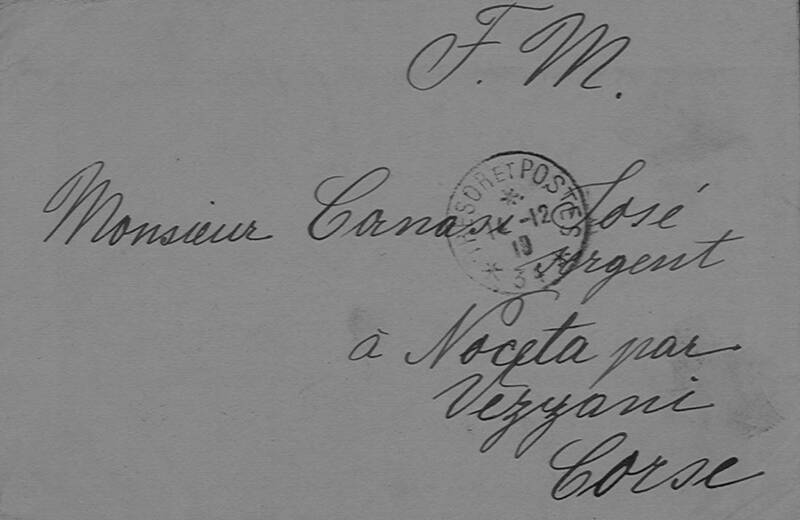 F. M.
Monsieur Canasi José
TRESOR ET POSTES
-12
19
34
sergent
à Noceta par
Vezzani
Corse